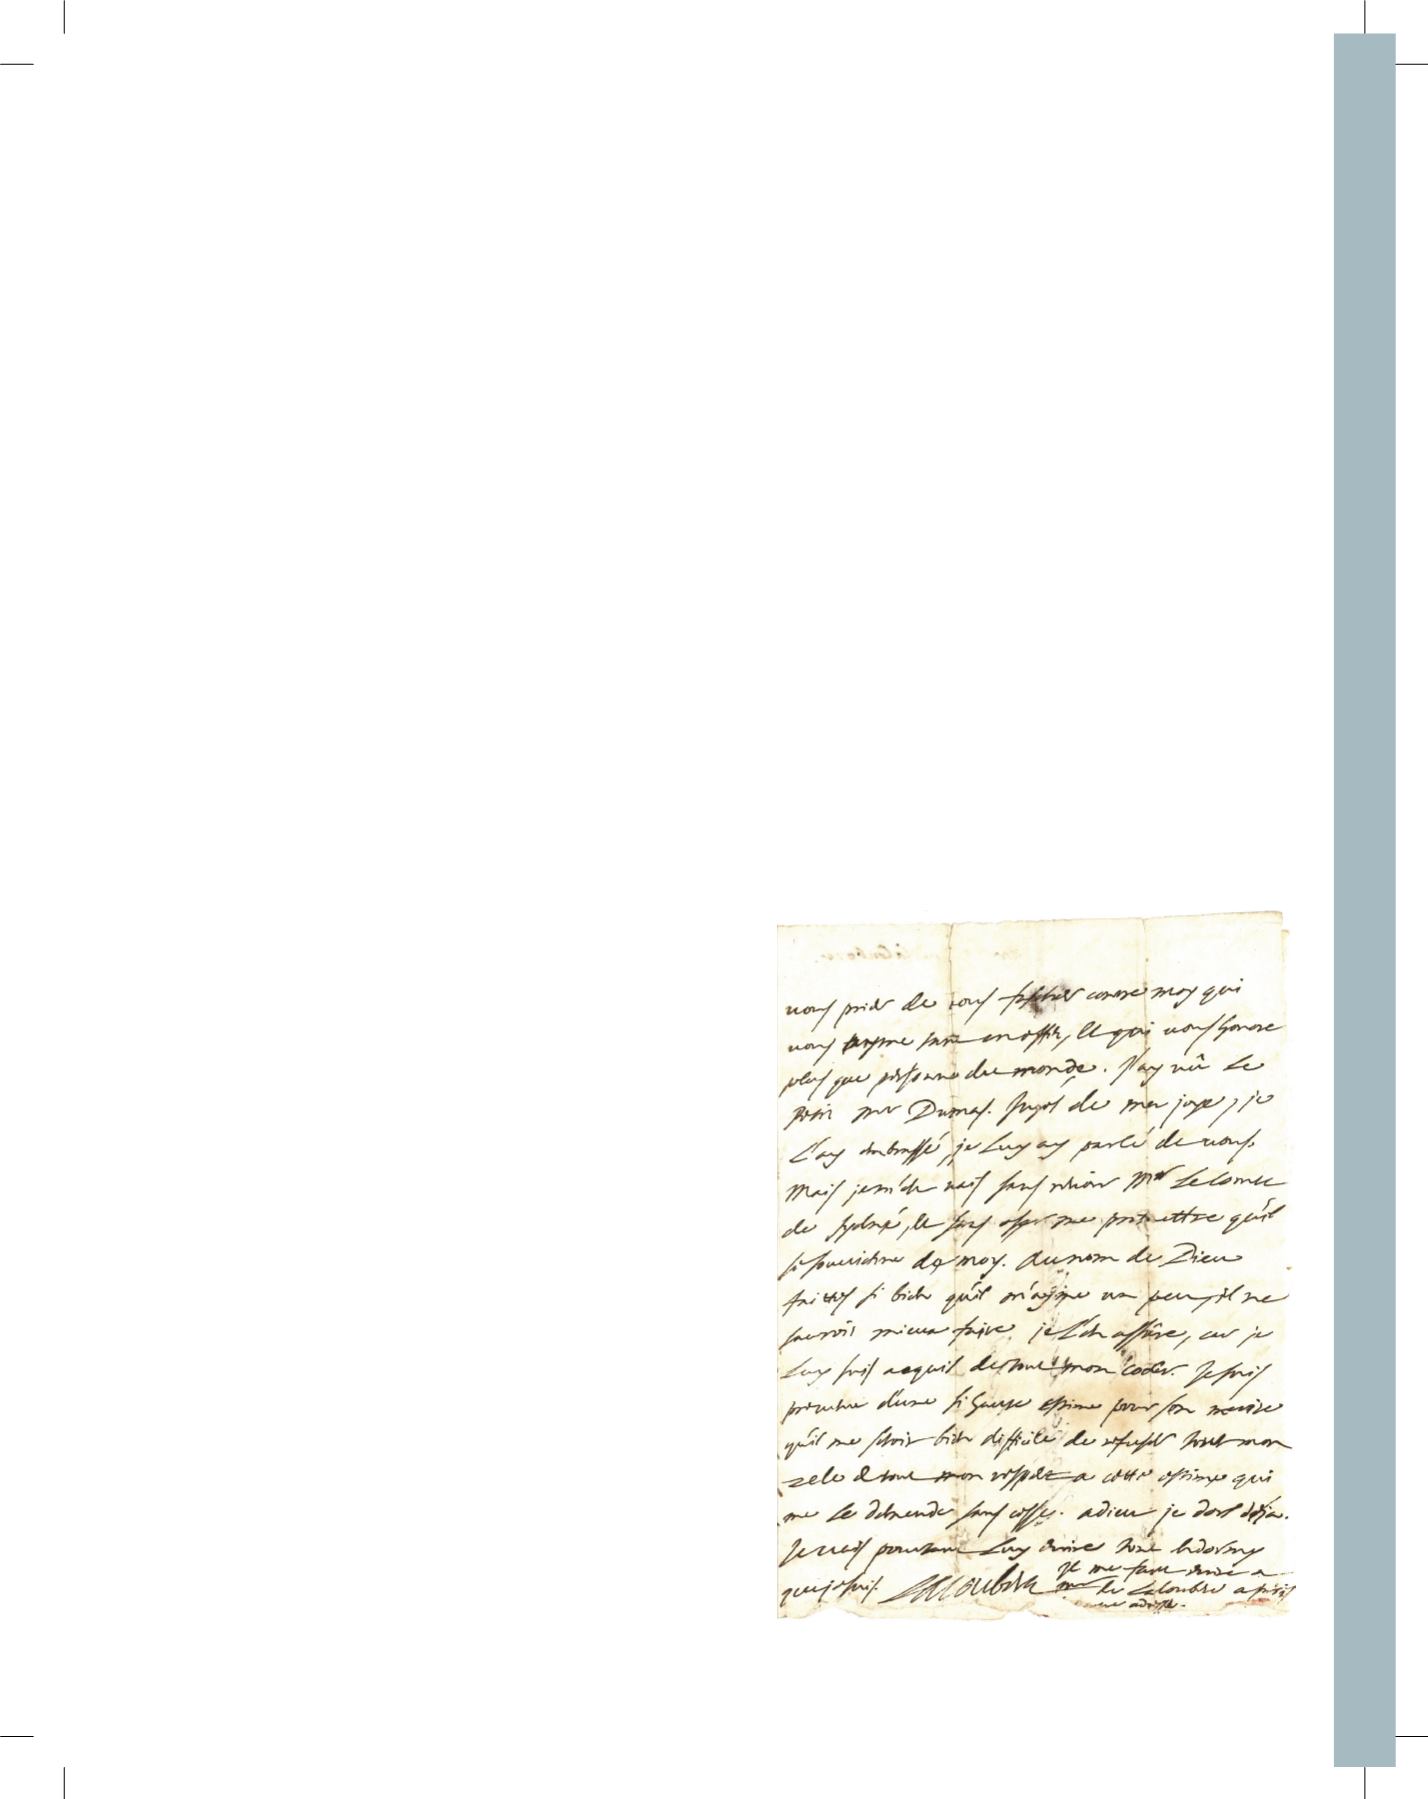 vous prier de vous fascher contre moy qui
vous ayme en effet, et qui vous honore
plus que personne du monde. J'ay vû le
mr Dumas. de ma joye, je
l'ay embrassé, je luy ay parlé de vous.
Mais je m'en vais sans revoir Mr le Comte
de et sans oser me promettre qu'il
se souvienne de moy. Au nom de Dieu
faittes si bien qu'il m'ayme un peu, il ne
sauroit mieux faire je l'en assûre, car je
luy suis acquis de tout mon coeur. Je suis
d'une si haute estime pour son merite
qu'il me seroit bien difficile de refuser tout mon
zele et tout mon respect a cette estime qui
me le demende sans cesse. adieu je dors déja.
Je vais pourtant luy écrire tout endormy
que je suis. Laloubere Il me faut écrire a
mr de Laloubere a
adresse.